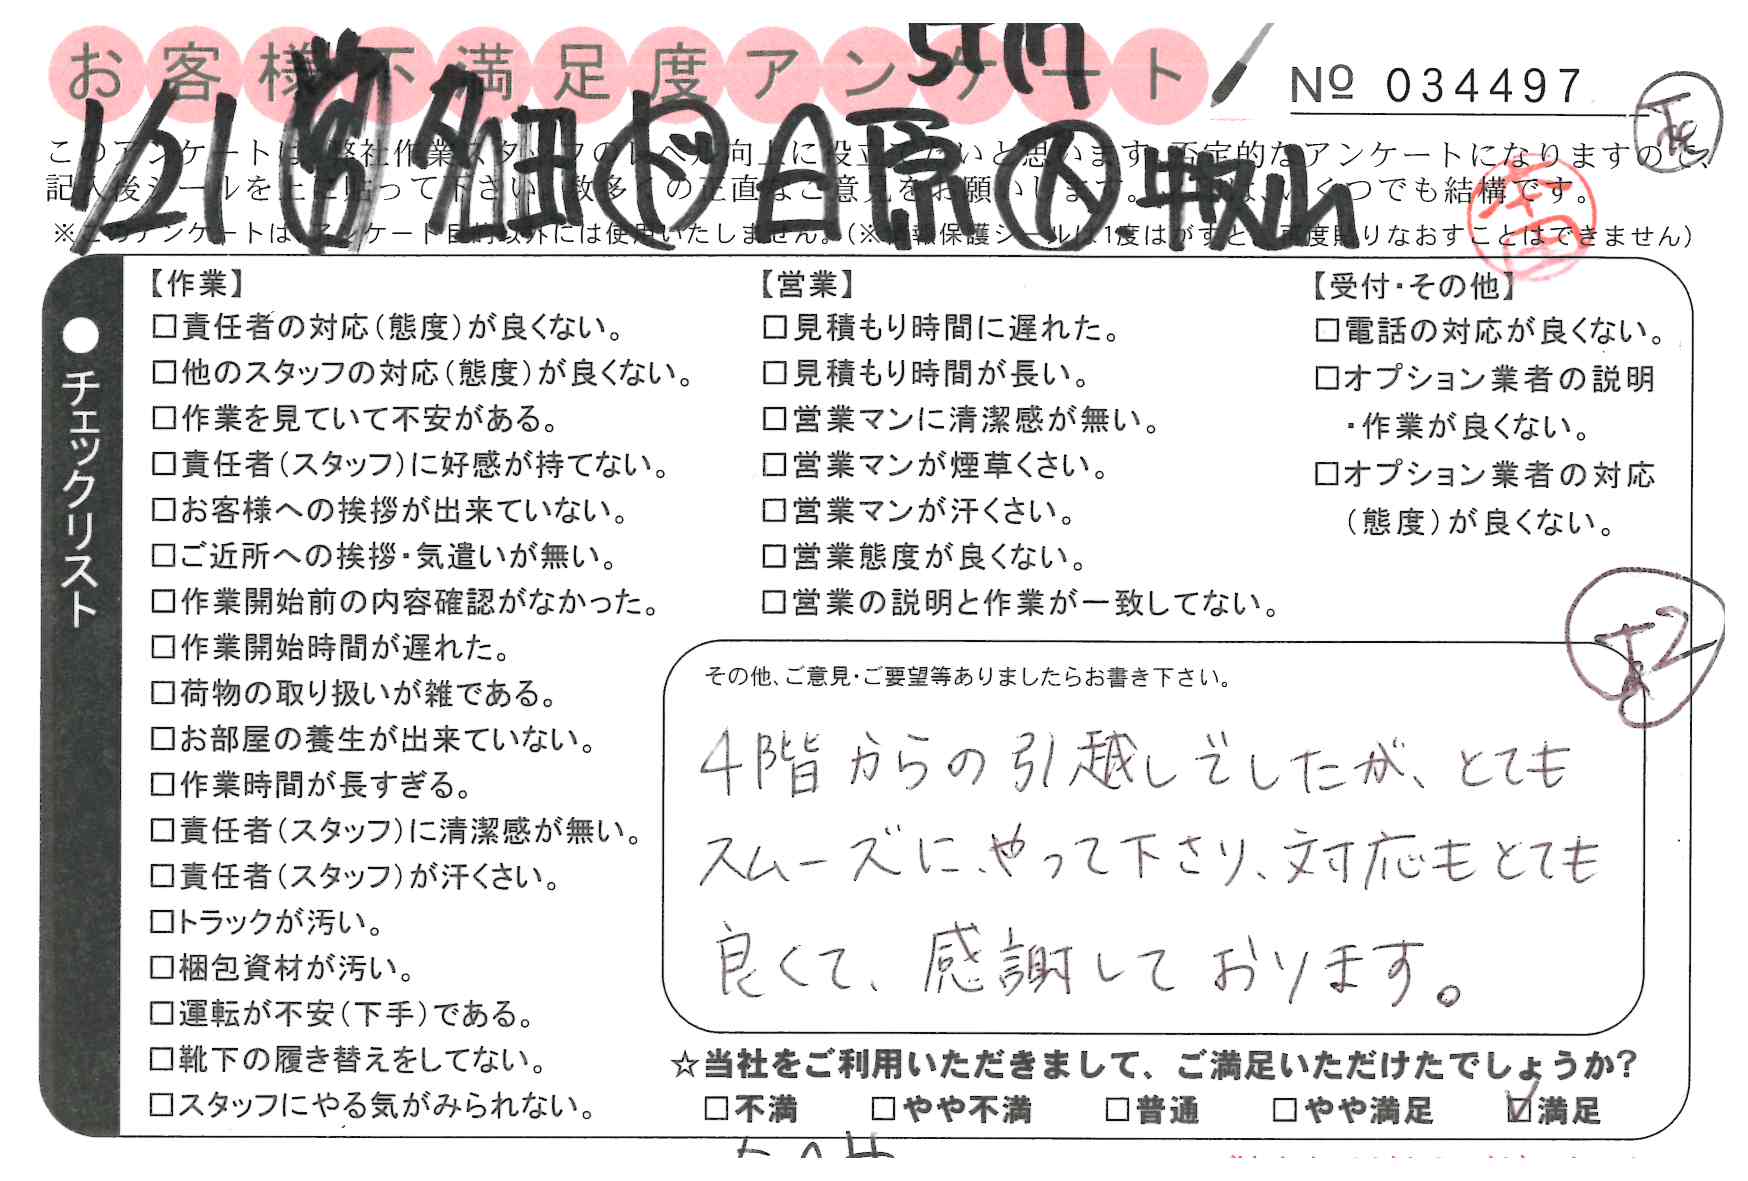 お客様不満足度アンケート
Nº 034497
1/21
このアンケートは、弊社作業スタッフのレベル向上に役立てたいと思います。否定的なアンケートになりますので、
記入後シールを上に貼って下さい。数多くの正直なご意見をお願いします。 いくつでも結構です。
※このアンケートは、アンケート目的以外には使用いたしません。(※情報保護シールは1度はがすと、再度貼りなおすことはできません)
●チェックリスト
【作業】
□責任者の対応(態度)が良くない。
□他のスタッフの対応(態度)が良くない。
□作業を見ていて不安がある。
□責任者(スタッフ)に好感が持てない。
□お客様への挨拶が出来ていない。
□ご近所への挨拶・気遣いが無い。
□作業開始前の内容確認がなかった。
□作業開始時間が遅れた。
□荷物の取り扱いが雑である。
□お部屋の養生が出来ていない。
□作業時間が長すぎる。
□責任者(スタッフ)に清潔感が無い。
□責任者(スタッフ)が汗くさい。
□トラックが汚い。
□梱包資材が汚い。
□運転が不安(下手)である。
□靴下の履き替えをしてない。
□スタッフにやる気がみられない。
【営業】
□見積もり時間に遅れた。
□見積もり時間が長い。
□営業マンに清潔感が無い。
□営業マンが煙草くさい。
□営業マンが汗くさい。
□営業態度が良くない。
□営業の説明と作業が一致してない。
【受付・その他】
□電話の対応が良くない。
□オプション業者の説明
・作業が良くない。
□オプション業者の対応
(態度)が良くない。
その他、ご意見・ご要望等ありましたらお書き下さい。
4階からの引越しでしたが、とても
スムーズに、やって下さり、対応もとても
良くて、感謝しております。
☆当社をご利用いただきまして、ご満足いただけたでしょうか?
□不満 □やや不満 □普通 □やや満足 ☑満足